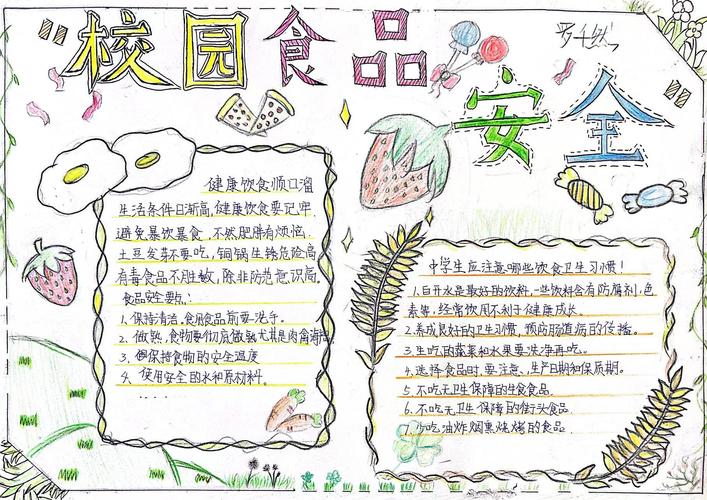 校园食品
安全
健康饮食顺口溜
生活条件日渐高,健康饮食要记牢.
避免暴饮暴食,不然肥胖有烦恼.
土豆发芽不要吃,铜锅生锈危险高
有毒食品不胜敏,除非防范意识高.
食品安全要点:
1.保持清洁,食用食品前要洗手.
2.做熟,食物要彻底做熟尤其是肉禽海鲜
3.保持食物的安全温度
4.使用安全的水和原材料.
......
中学生应注意哪些饮食卫生习惯!
1.白开水是最好的饮料,一些饮料含有防腐剂,色
素等,经常饮用不利于健康成长.
2.养成良好的卫生习惯,预防肠道病的传播.
3.生吃的蔬菜和水果要洗净再吃.
4.选择食品时,要注意,生产日期和保质期.
5.不吃无卫生保障的生食食品.
6.不吃无卫生保障的街头食品.
7.少吃油炸烟熏烧烤的食品